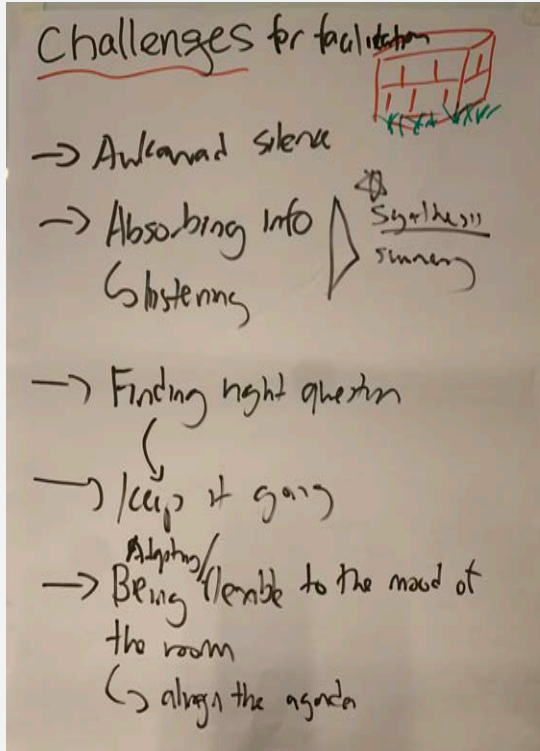 Challenges for facilitation
→ Awkward silence
→ Absorbing info
Synthesis
summary
↳ listening
→ Finding right question
→ keep it going
Adapting/
→ Being flexible to the mood of
the room
↳ align the agenda